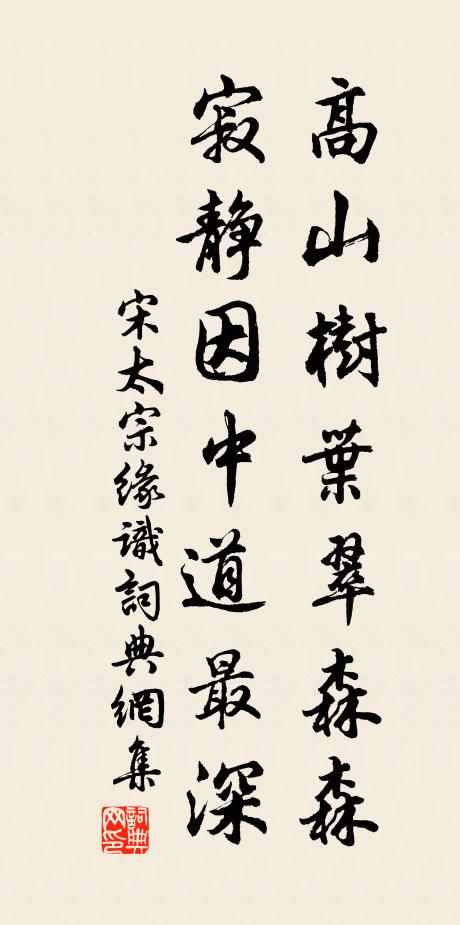 高山樹葉翠森森
寂静因中道最深
宋太宗緣識詞典網集
詞典
网印